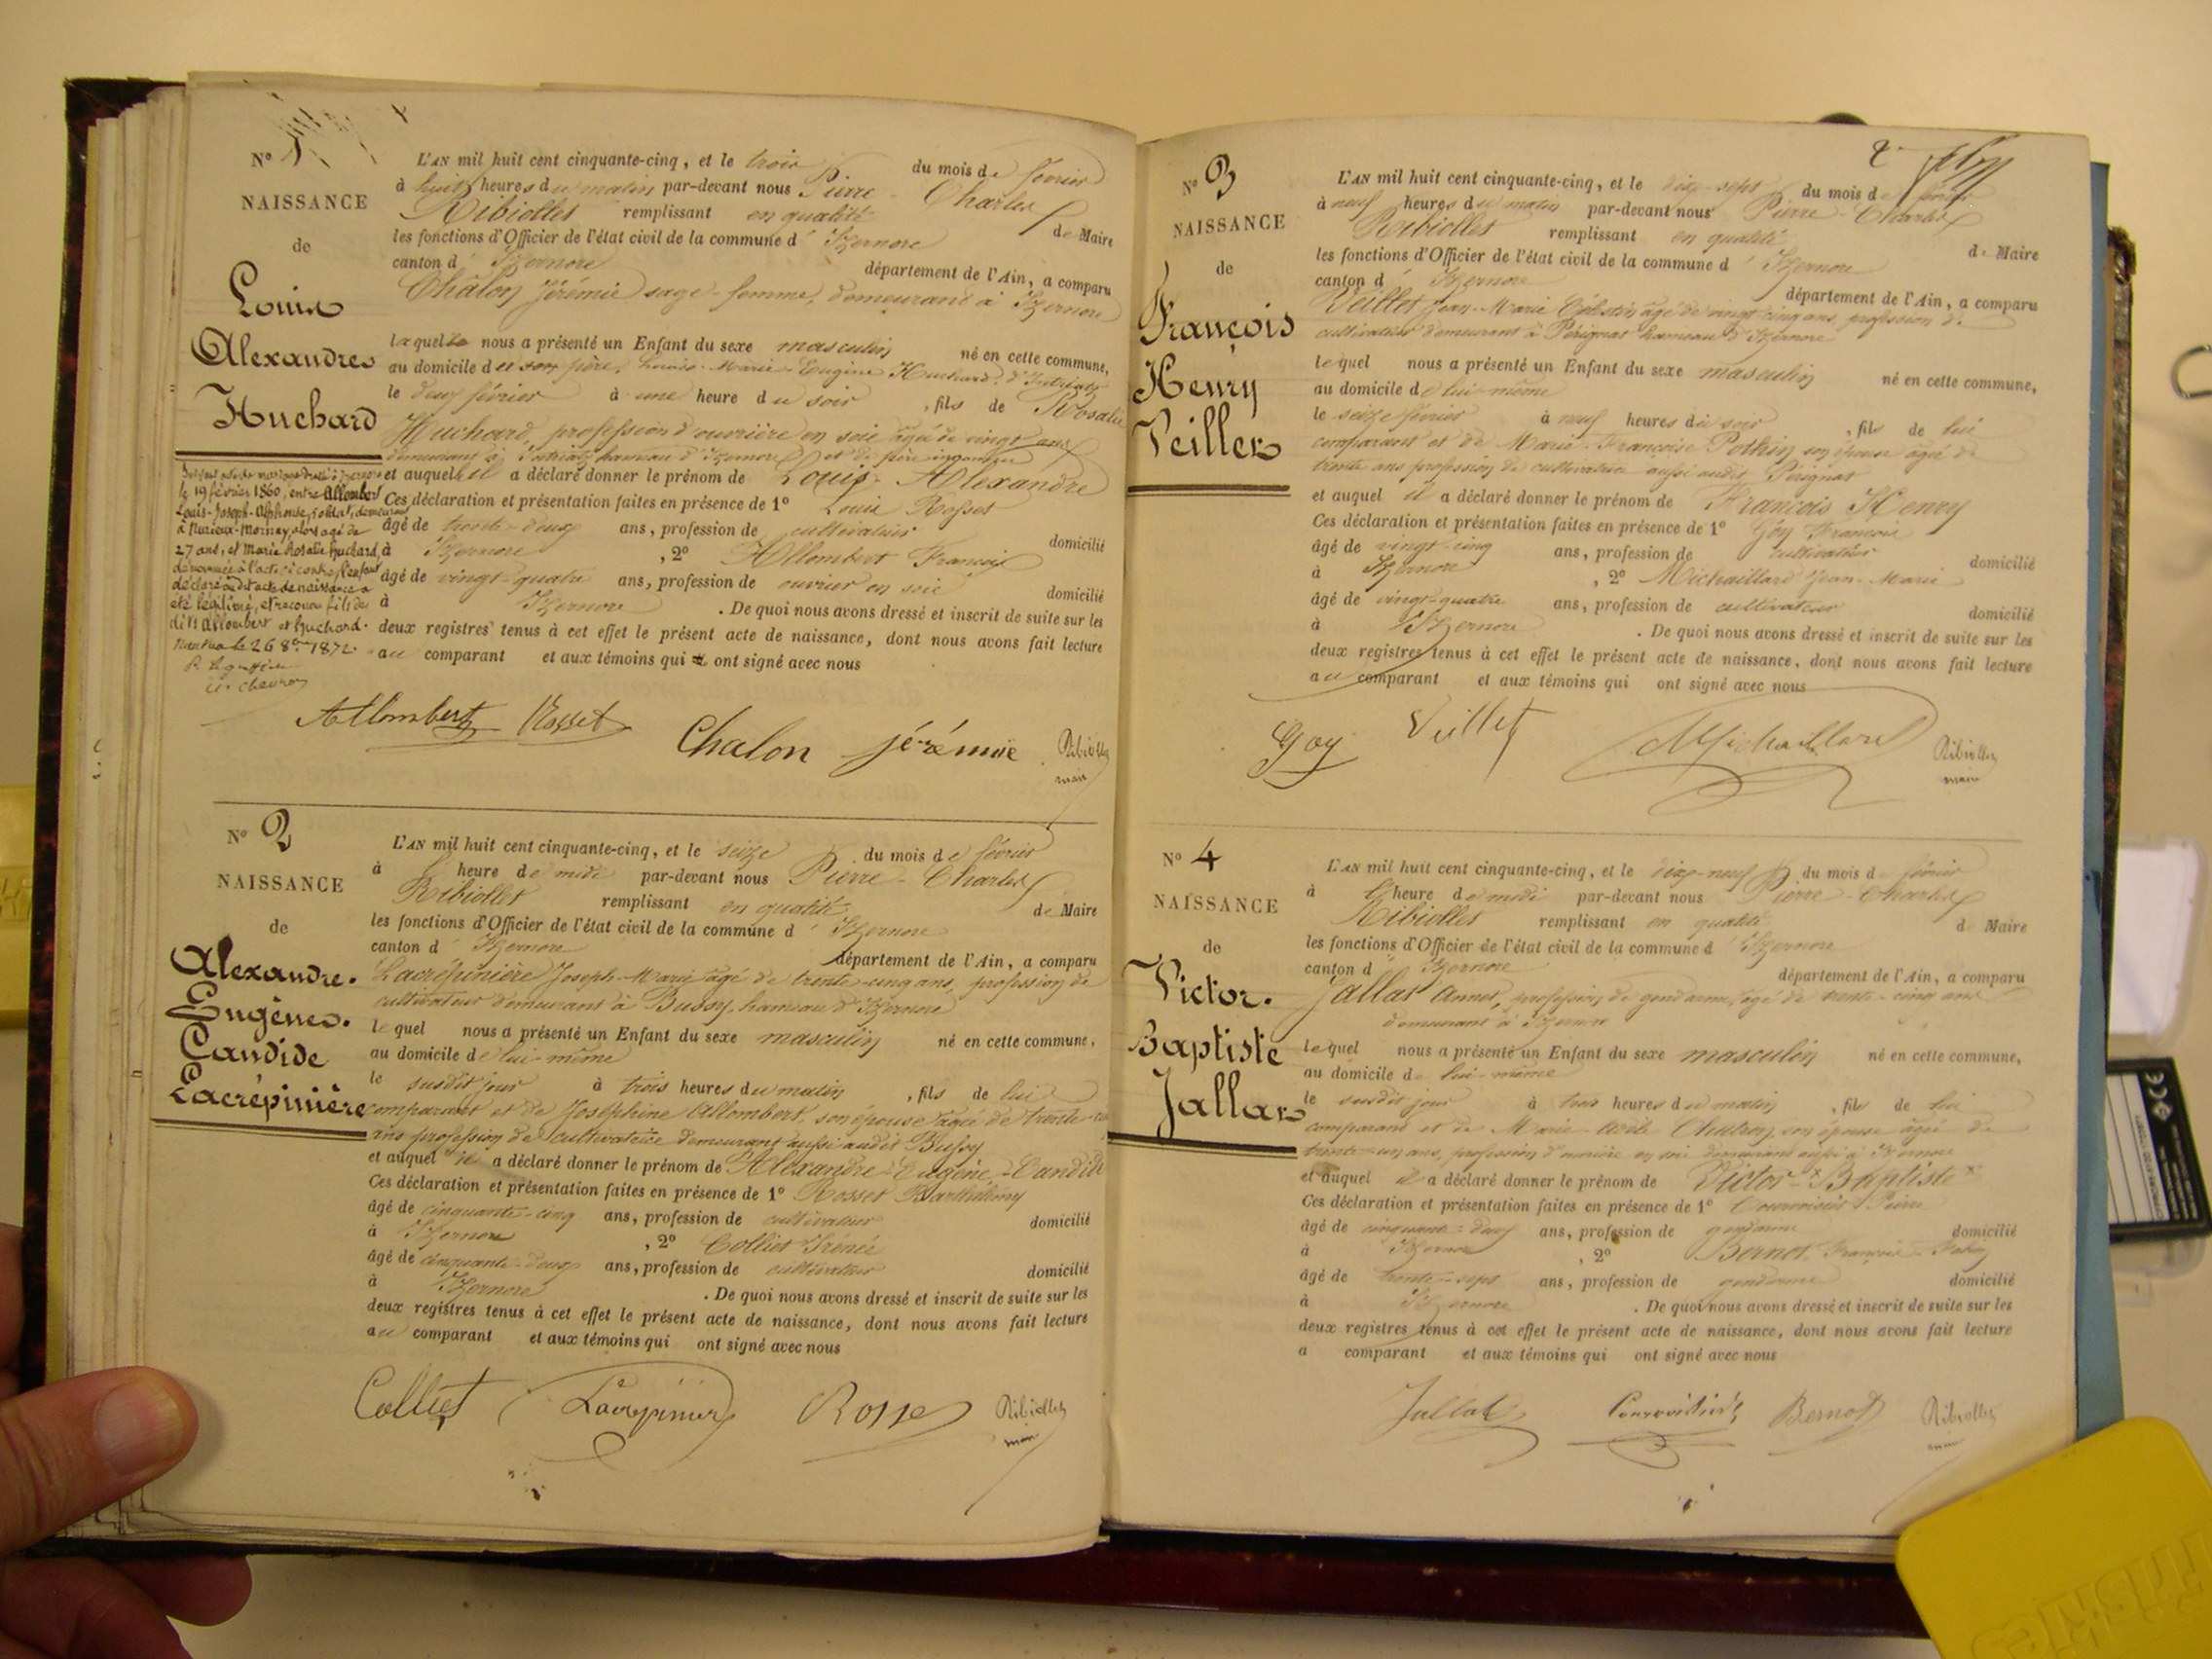 N° 1
NAISSANCE
de
Louis
Alexandre
Huchard
L'AN mil huit cent cinquante-cinq, et le trois du mois de février
à huit heures du matin par-devant nous Pierre - Charles
Ribiollet remplissant en qualité de Maire
les fonctions d'Officier de l'état civil de la commune d' Izernore
canton d' Izernore département de l'Ain, a comparu
Châlon Jérémie sage-femme, demeurant à Izernore
laquelle nous a présenté un Enfant du sexe masculin né en cette commune,
au domicile de son père, Louis-Marie-Eugène Huchard, d'
le deux février à une heure du soir, fils de Rosalie
Huchard, profession d'ouvrière en soie âgée de vingt ans
demeurant à hameau d'Izernore et de père inconnu
et auquel il a déclaré donner le prénom de Louis-Alexandre
Ces déclaration et présentation faites en présence de 1° Louis Rosset
âgé de trente-deux ans, profession de cultivateur domicilié
à Izernore, 2° Allombert François
âgé de vingt-quatre ans, profession de ouvrier en soie domicilié
à Izernore. De quoi nous avons dressé et inscrit de suite sur les
deux registres tenus à cet effet le présent acte de naissance, dont nous avons fait lecture
au comparant et aux témoins qui ont signé avec nous
le 19 février 1860, entre Allombert
Louis-Joseph-Alphonse, soldat, demeurant
à Nurieux-Mornay, alors agé de
27 ans, et Marie Rosalie Huchard,
dénommée à l'acte ci contre, l'enfant
déclaré audit acte de naissance a
été légitimé, et reconnu fils de
dits Allombert et Huchard.
Nantua le 26 8bre 1872.
Allombert Rosset Chalon jérémie Ribiollet
maire
N° 2
NAISSANCE
de
Alexandre.
Eugène.
Candide
Lacrépinière
L'AN mil huit cent cinquante-cinq, et le seize du mois de février
à l' heure de midi par-devant nous Pierre - Charles
Ribiollet remplissant en qualité de Maire
les fonctions d'Officier de l'état civil de la commune d' Izernore
canton d' Izernore département de l'Ain, a comparu
Lacrépinière Joseph-Marie âgé de trente-cinq ans, profession de
cultivateur demeurant à Bussy hameau d'Izernore
lequel nous a présenté un Enfant du sexe masculin né en cette commune,
au domicile de lui-même
le susdit jour à trois heures du matin, fils de lui
comparant et de Joséphine Allombert, son épouse âgée de trente
ans profession de cultivatrice demeurant aussi audit Bussy
et auquel il a déclaré donner le prénom de Alexandre-Eugène-Candide
Ces déclaration et présentation faites en présence de 1° Rosset Barthélemy
âgé de cinquante-cinq ans, profession de cultivateur domicilié
à Izernore, 2° Colliet Irénée
âgé de cinquante-deux ans, profession de cultivateur domicilié
à Izernore. De quoi nous avons dressé et inscrit de suite sur les
deux registres tenus à cet effet le présent acte de naissance, dont nous avons fait lecture
au comparant et aux témoins qui ont signé avec nous
Colliet Lacrépinière Rosset Ribiollet
maire
2
N° 3
NAISSANCE
de
François
Henry
Veillet
L'AN mil huit cent cinquante-cinq, et le dix-sept du mois de février
à neuf heures du matin par-devant nous Pierre - Charles
Ribiollet remplissant en qualité de Maire
les fonctions d'Officier de l'état civil de la commune d' Izernore
canton d' Izernore département de l'Ain, a comparu
Veillet Jean-Marie Célestin âgé de vingt cinq ans, profession de
cultivateur demeurant à Pérignat hameau d'Izernore
lequel nous a présenté un Enfant du sexe masculin né en cette commune,
au domicile de lui-même
le seize février à neuf heures du soir, fils de lui
comparant et de Marie-Françoise Pothin son épouse âgée de
trente ans profession de cultivatrice aussi audit Pérignat
et auquel il a déclaré donner le prénom de François Henry
Ces déclaration et présentation faites en présence de 1° Goy François
âgé de vingt-cinq ans, profession de cultivateur domicilié
à Izernore, 2° Michaillard Jean-Marie
âgé de vingt-quatre ans, profession de cultivateur domicilié
à Izernore. De quoi nous avons dressé et inscrit de suite sur les
deux registres tenus à cet effet le présent acte de naissance, dont nous avons fait lecture
au comparant et aux témoins qui ont signé avec nous
Goy Veillet Michaillard Ribiollet
maire
N° 4
NAISSANCE
de
Victor.
Baptiste
Jallat
L'AN mil huit cent cinquante-cinq, et le dix-neuf du mois de février
à l' heure de midi par-devant nous Pierre - Charles
Ribiollet remplissant en qualité de Maire
les fonctions d'Officier de l'état civil de la commune d' Izernore
canton d' Izernore département de l'Ain, a comparu
Jallat Annet, profession de gendarme, âgé de trente-cinq ans
demeurant à Izernore
lequel nous a présenté un Enfant du sexe masculin né en cette commune,
au domicile de lui-même
le susdit jour à trois heures du matin, fils de lui
comparant et de Marie son épouse âgée de
trente-un ans, profession d'ouvrière en soie demeurant aussi à Izernore
et auquel il a déclaré donner le prénom de Victor-Baptiste
Ces déclaration et présentation faites en présence de 1° Pierre
âgé de cinquante-deux ans, profession de gendarme domicilié
à Izernore, 2° Bernot, François
âgé de trente-sept ans, profession de gendarme domicilié
à Izernore. De quoi nous avons dressé et inscrit de suite sur les
deux registres tenus à cet effet le présent acte de naissance, dont nous avons fait lecture
a comparant et aux témoins qui ont signé avec nous
Jallat Bernot Ribiollet